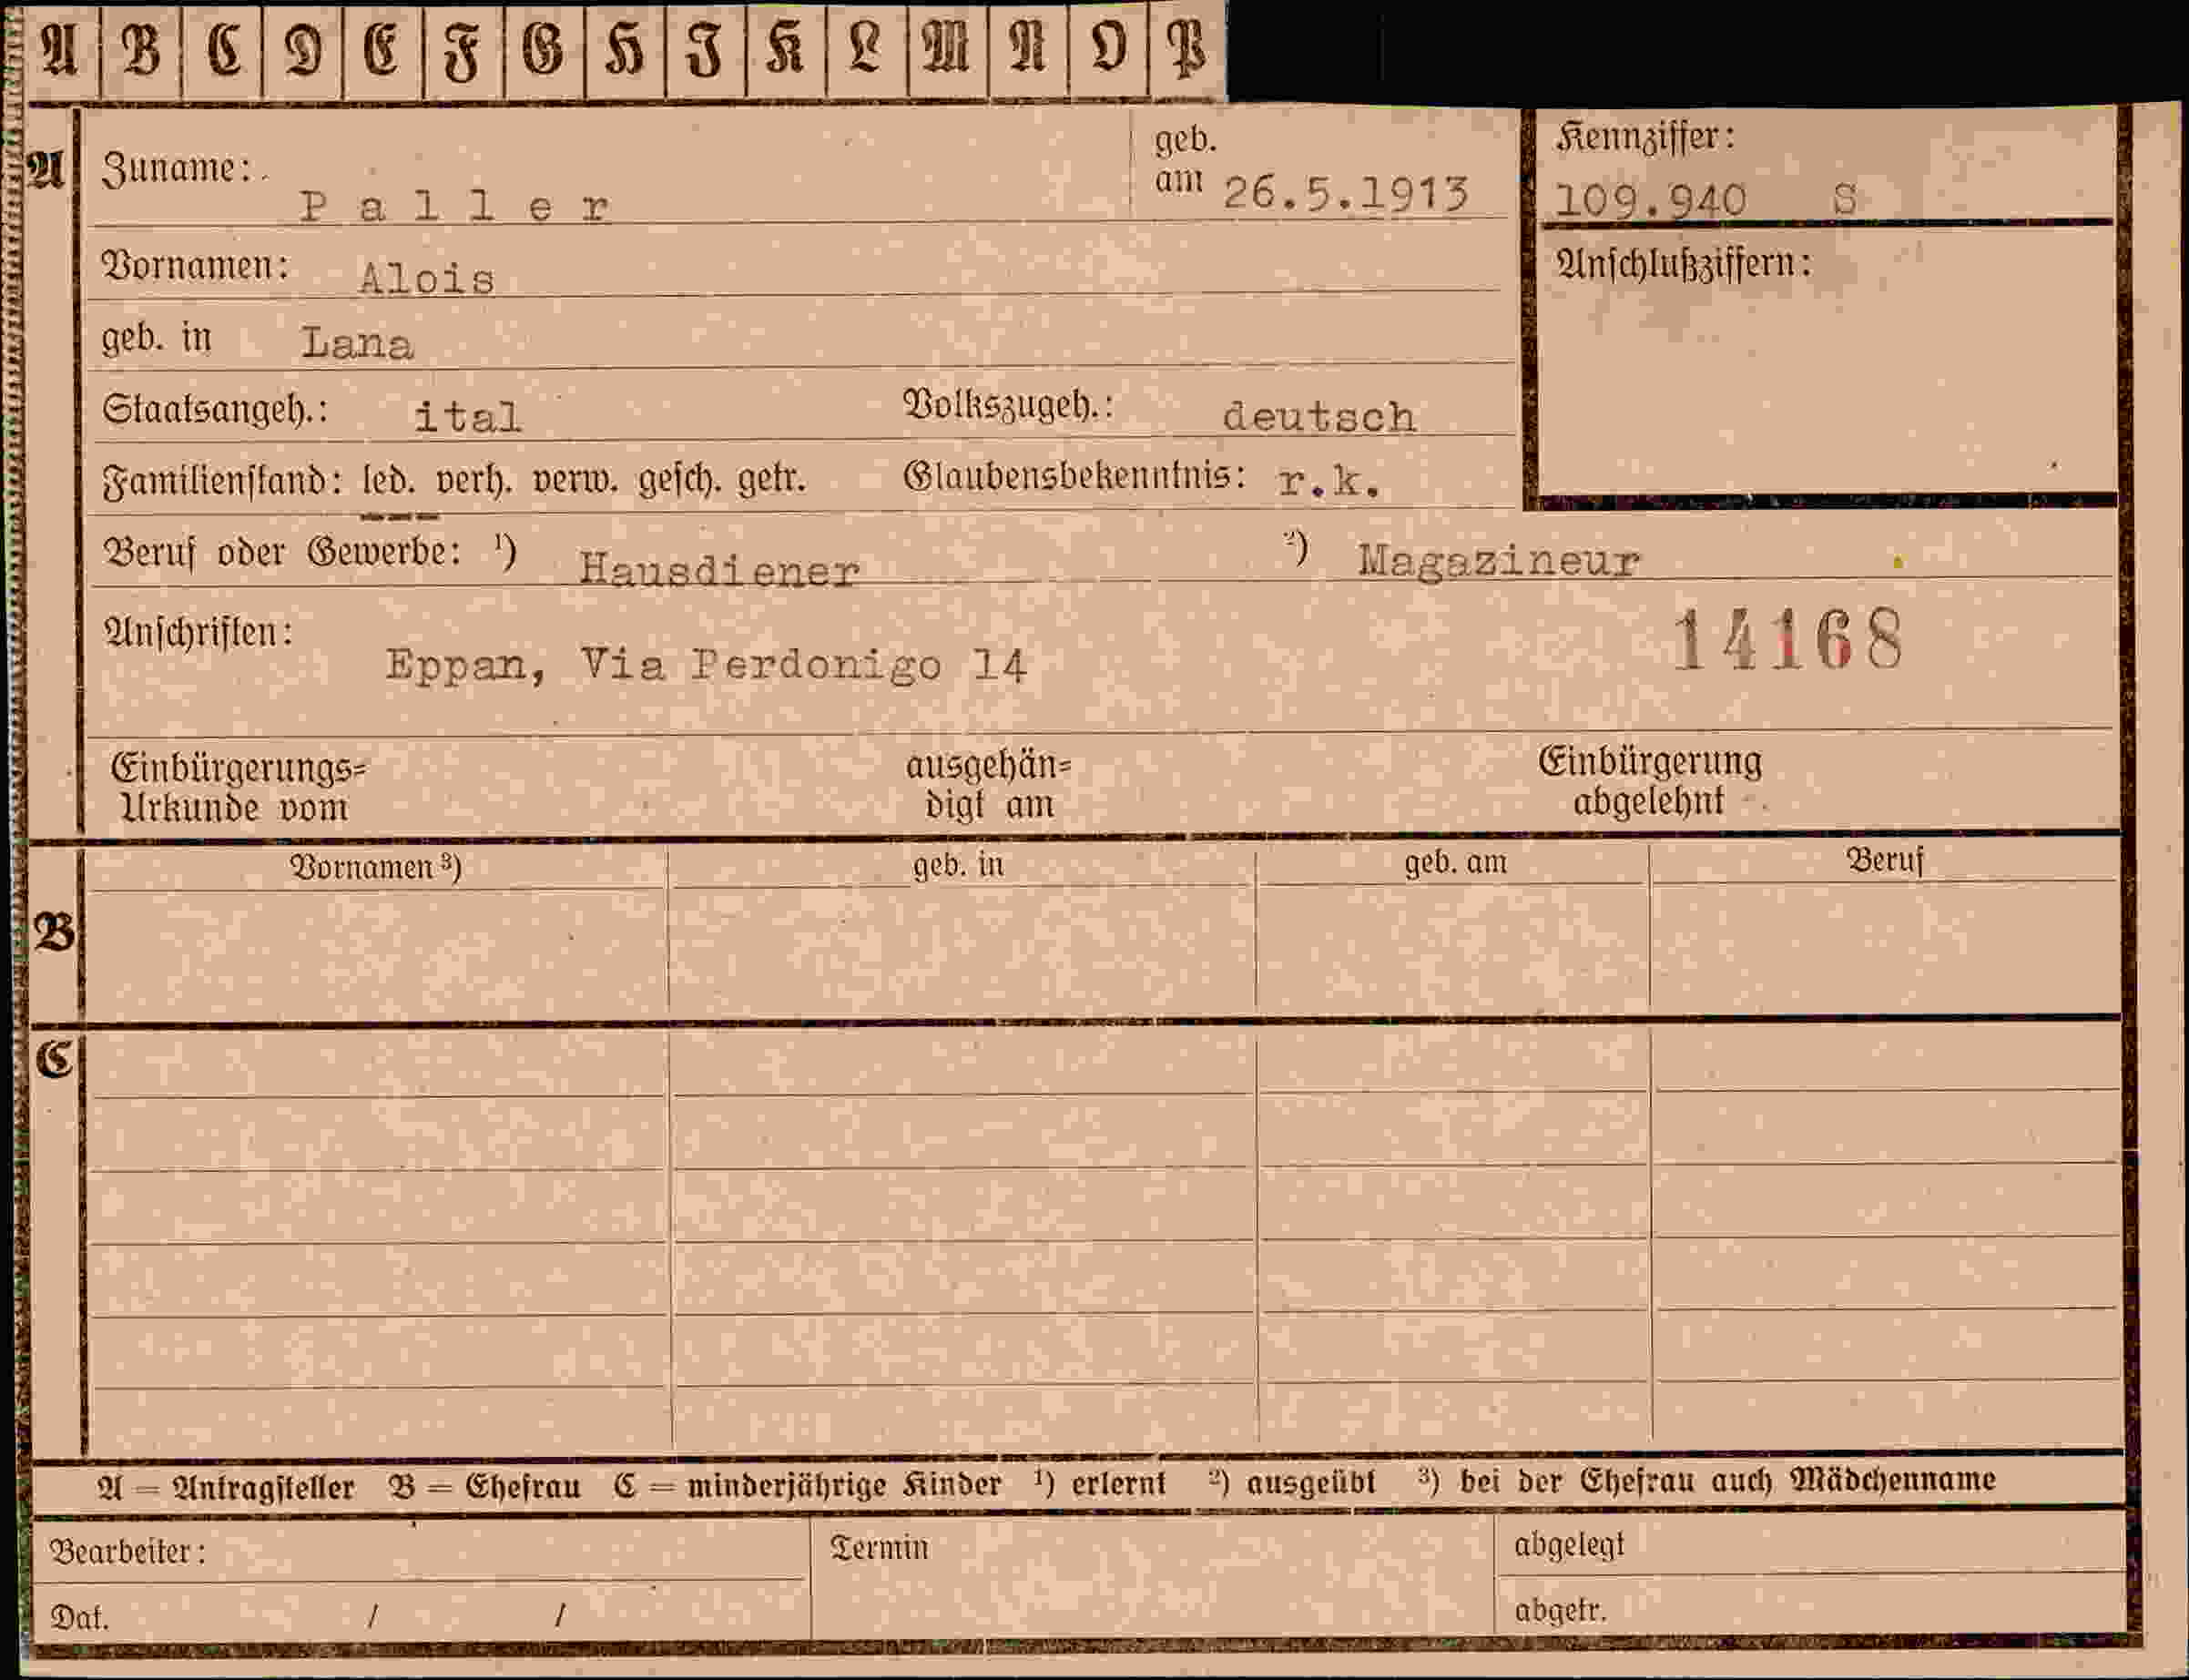 A B C D E F G H I K L M N O P
A Zuname: Paller geb. am 26.5.1913 Kennziffer: 109.940 S
Vornamen: Alois Anschlußziffern:
geb. in Lana
Staatsangeh.: ital Volkszugeh.: deutsch
Familienstand: led. verh. verw. gesch. getr. Glaubensbekenntnis: r.k.
Beruf oder Gewerbe: ¹) Hausdiener ²) Magazineur
Anschriften: Eppan, Via Perdonigo 14 14168
Einbürgerungs= ausgehän= Einbürgerung
Urkunde vom digt am abgelehnt
Vornamen ³) geb. in geb. am Beruf
B
C
A = Antragsteller B = Ehefrau C = minderjährige Kinder ¹) erlernt ²) ausgeübt ³) bei der Ehefrau auch Mädchenname
Bearbeiter: Termin abgelegt
Dat. / / abgetr.